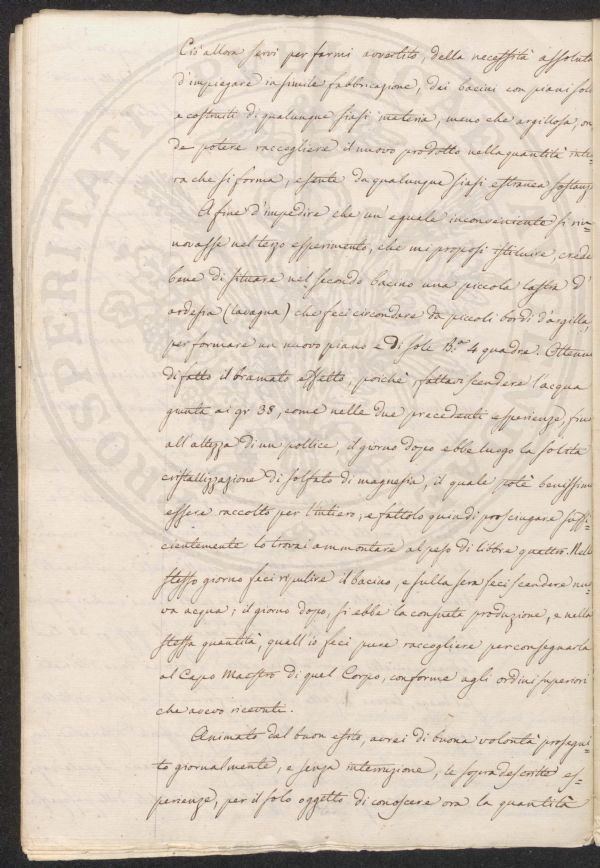 Ciò allora servì per farmi avvertito, della necessità assoluta
d'impiegare in simile fabbricazione, dei bacini con piani sol
e costruiti di qualunque siasi materia, meno che argillosa, on
de potere raccogliere il nuovo prodotto nella quantità inte=
ra che si forma, esente da qualunque siasi estranea sostanz
A fine d'impedire che un eguale inconveniente si rin=
novasse nel terzo esperimento, che mi proposi istituire, crede
bene di situare nel secondo bacino una piccola lastra d'
ardesia (lavagna) che feci circondare da piccoli bordi d'argilla,
per formare un nuovo piano e di sole B.ª 4 quadre. Ottenn
di fatto il bramato effetto, poichè, fattavi scendere l'acqua
giunta ai gr 38, come nelle due precedenti esperienze, fin
all'altezza di un pollice, il giorno dopo ebbe luogo la solita
cristallizzazione di solfato di magnesia, il quale potè benissimo
essere raccolto per l'intiero, e fattolo quindi prosciugare suffi=
cientemente lo trovai ammontare al peso di libbre quattro. Nello
stesso giorno feci ripulire il bacino, e sulla sera feci scendere nuo
va acqua; il giorno dopo, si ebbe la consueta produzione, e nella
stessa quantità, quall'io feci pure raccogliere per consegnarla
al Capo Maestro di quel Corpo, conforme agli ordini superiori
che avevo ricevuti.
Animato dal buon esito, avrei di buona volontà prosegui=
to giornalmente, e senza interruzione, le sopradescritte es=
perienze, per il solo oggetto di conoscere ora la quantità
PROSPERITATI